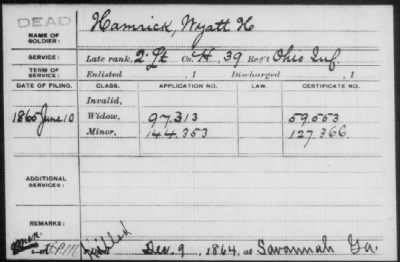 DEAD
NAME OF SOLDIER: Hamrick, Wyatt H
SERVICE: Late rank, 2" Lt Co. H, 39 Reg't Ohio Inf.
TERM OF SERVICE: Enlisted , 1 Discharged , 1
DATE OF FILING. CLASS. APPLICATION NO. LAW. CERTIFICATE NO.
Invalid,
1865 June 10 Widow, 97.313 59.553
Minor, 144.353 127.366
ADDITIONAL SERVICES:
REMARKS:
Killed Dec. 9, 1864, at Savannah Ga.